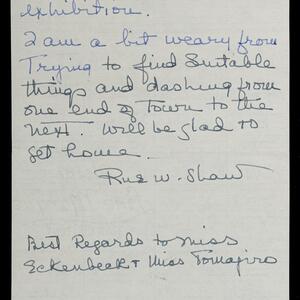 exhibition.
I am a bit weary from
Trying to find suitable
things and dashing from
one end of Town to the
next. Will be glad to
get home.
W. Shaw
Best Regards to Miss
Eckenbeck + Miss Tomajiro